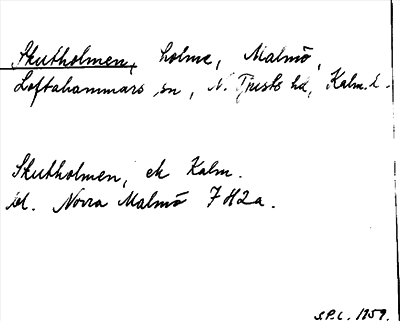 Skutholmen, holme, Malmö,
Loftahammars sn, N. Tjusts hd, Kalm. l.
Skutholmen, ek Kalm.
bl. Norra Malmö 7 H2a.
S.P.L. 1959.